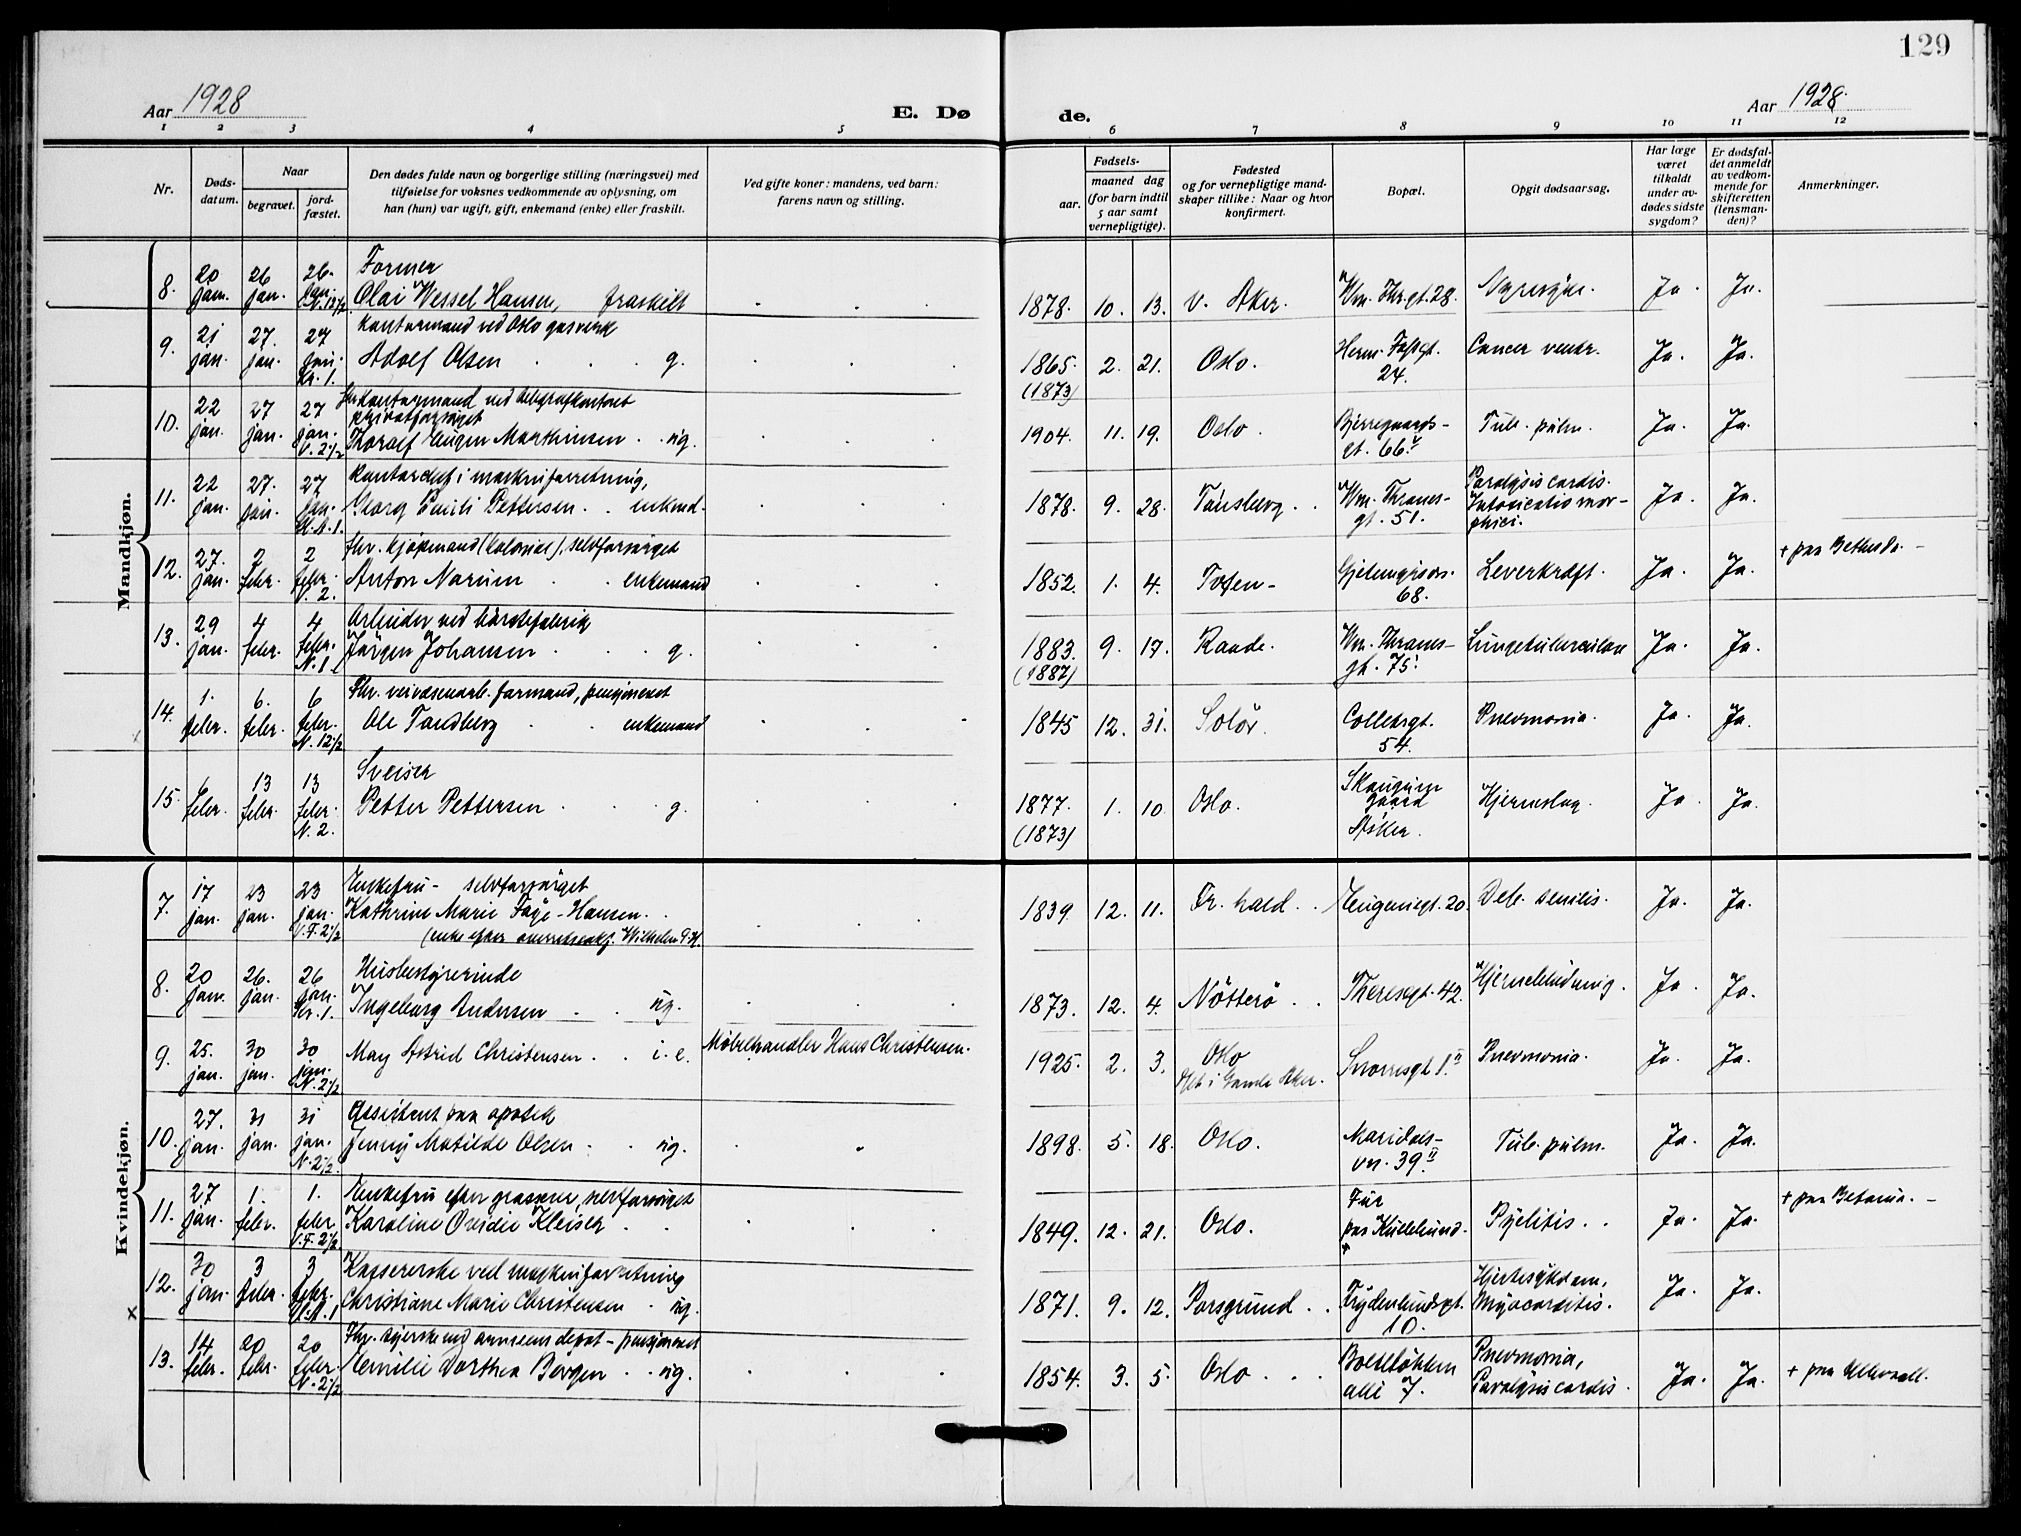 129
Aar 1928
E. Dø
de.
Aar 1928.
1 2 3 4 5 6 7 8 9 10 11 12
Nr.
Døds-
datum.
Naar
begravet.
jord-
fæstet.
Den dødes fulde navn og borgerlige stilling (næringsvei) med
tilføielse for voksnes vedkommende av oplysning, om
han (hun) var ugift, gift, enkemand (enke) eller fraskilt.
Ved gifte koner: mandens, ved barn:
farens navn og stilling.
Fødsels-
aar.
maaned dag
(for barn indtil
5 aar samt
vernepligtige).
Fødested
og for vernepligtige mand-
skaper tillike: Naar og hvor
konfirmert.
Bopæl.
Opgit dødsaarsag.
Har læge
været
tilkaldt
under av-
dødes sidste
sygdom?
Er dødsfal-
det anmeldt
av vedkom-
mende for
skifteretten
(lensman-
den)?
Anmerkninger.
Mandkjøn.
8. 20 jan. 26 jan. 26. jan.
Former
Olai Wessel Hansen, fraskilt
1878. 10. 13. V. Aker. Wm. Thr.gt. 28. Nyresyke. Ja. Ja.
9. 21 jan. 27. jan. 27 jan. Kr. 1.
Kontormand ved Oslo gasverk
Adolf Olsen g.
1865. (1873) 2. 21. Oslo. Herm. Fossgt. 24. Cancer ventr. Ja. Ja.
10. 22 jan. 27 jan. 27 jan. V. 2 1/2
fhv. kontormand ved telegrafkontoret
privatforsørget
Thoralf Eugen Marthinsen ug.
1904. 11. 19. Oslo. Bjerregaards-
gt. 66. Tub. pulm. Ja. Ja.
11. 22 jan. 27. jan. 27 jan.
Kontorchef i maskinforretning,
Georg Emil Pettersen enkemd.
1878. 9. 28. Tønsberg Wm. Thranes-
gt. 51. Paralysis cordis.
Intoxicatio mor-
phici. Ja. Ja.
12. 27. jan. 2 febr. 2 febr. V. 2.
fhv. kjøpmand (kolonial), selvforsørget
Anton Narum enkemand
1852. 1. 4. Toten 68. Leverkræft. Ja. Ja. + paa Bethesda.
13. 29 jan. 4 febr. 4 febr. N. 1
Arbeider ved børstefabrik
Jørgen Johansen g.
1883. (1887) 9. 17. Raade. Wm. Thranes-
gt. 75. Lungetuberculose Ja. Ja.
14. 1. febr. 6. febr. 6 febr. N. 12 1/2
Fhv. veivæsenarb. formand, pensjoneret
Ole Tandberg enkemand
1845 12. 31. Solør. Colletsgt. 54. Pnevmonia. Ja. Ja.
15. febr. 13 febr. 13 febr. N. 2.
Sveiser
Petter Pettersen g.
1877. (1873) 1. 10 Oslo. Skaugum
gaard
Asker. Hjerneslag. Ja. Ja.
Kvindekjøn.
7. 17 jan. 23 jan. 23 jan. V.F. 2 1/2
Enkefru - selvforsørget
Kathrine Marie Faye-Hansen.
(enke efter overretssakf. Wilhelm F.H.
1839. 12. 11. Fr. hald. Eugeniegt. 20. Deb. senilis. Ja. Ja.
8. 20 jan. 26. jan. 26 jan. Kr. 1.
Husbestyrerinde
Ingeborg Andersen ug.
1873. 12. 4. Nøtterø Theresegt. 42. Hjerneblødning. Ja. Ja.
9. 25. jan. 30 jan. 30 jan. N. 2 1/2
May Astrid Christensen i. e. Møbelhandler Hans Christensen.
1925. 2. 3. Oslo
Døbt i Gamle Aker. Snorresgt 1. II Pnevmonia. Ja. Ja.
10. 27. jan. 31 jan. 31 jan. N. 2 1/2.
Assistent paa apotek
Jenny Matilde Olsen ug.
1898. 5. 18. Oslo. Maridals-
vn. 39. II Tub. pulm. Ja. Ja.
11. 27 jan. 1. febr. 1. febr. V.F. 2 1/2
Enkefru efter grosserer, selvforsørget
Karoline Ovidie Kleiser
1849. 12. 21. Oslo. Fur
paa Kullebund. Pyelitis. Ja. Ja. + paa Betania.
12. 30 jan. 3 febr. 3 febr.
Kassererske ved maskinforretning
Christiane Marie Christensen ug.
1871. 9. 12. Porsgrund Frydenlundsgt. 10. Hjertesykdom,
Myocarditis. Ja. Ja.
x
13. 14 febr. 20 febr. 20 febr. N. 2 1/2
Fhv. syerske ved armeens depot - pensjoneret
Emilie Dorthea Børgen ug.
1854. 3. 5. Oslo Bolteløkken
alle 7. Pnevmonia,
Paralysis cordis. Ja. Ja. + paa Ullevaal.